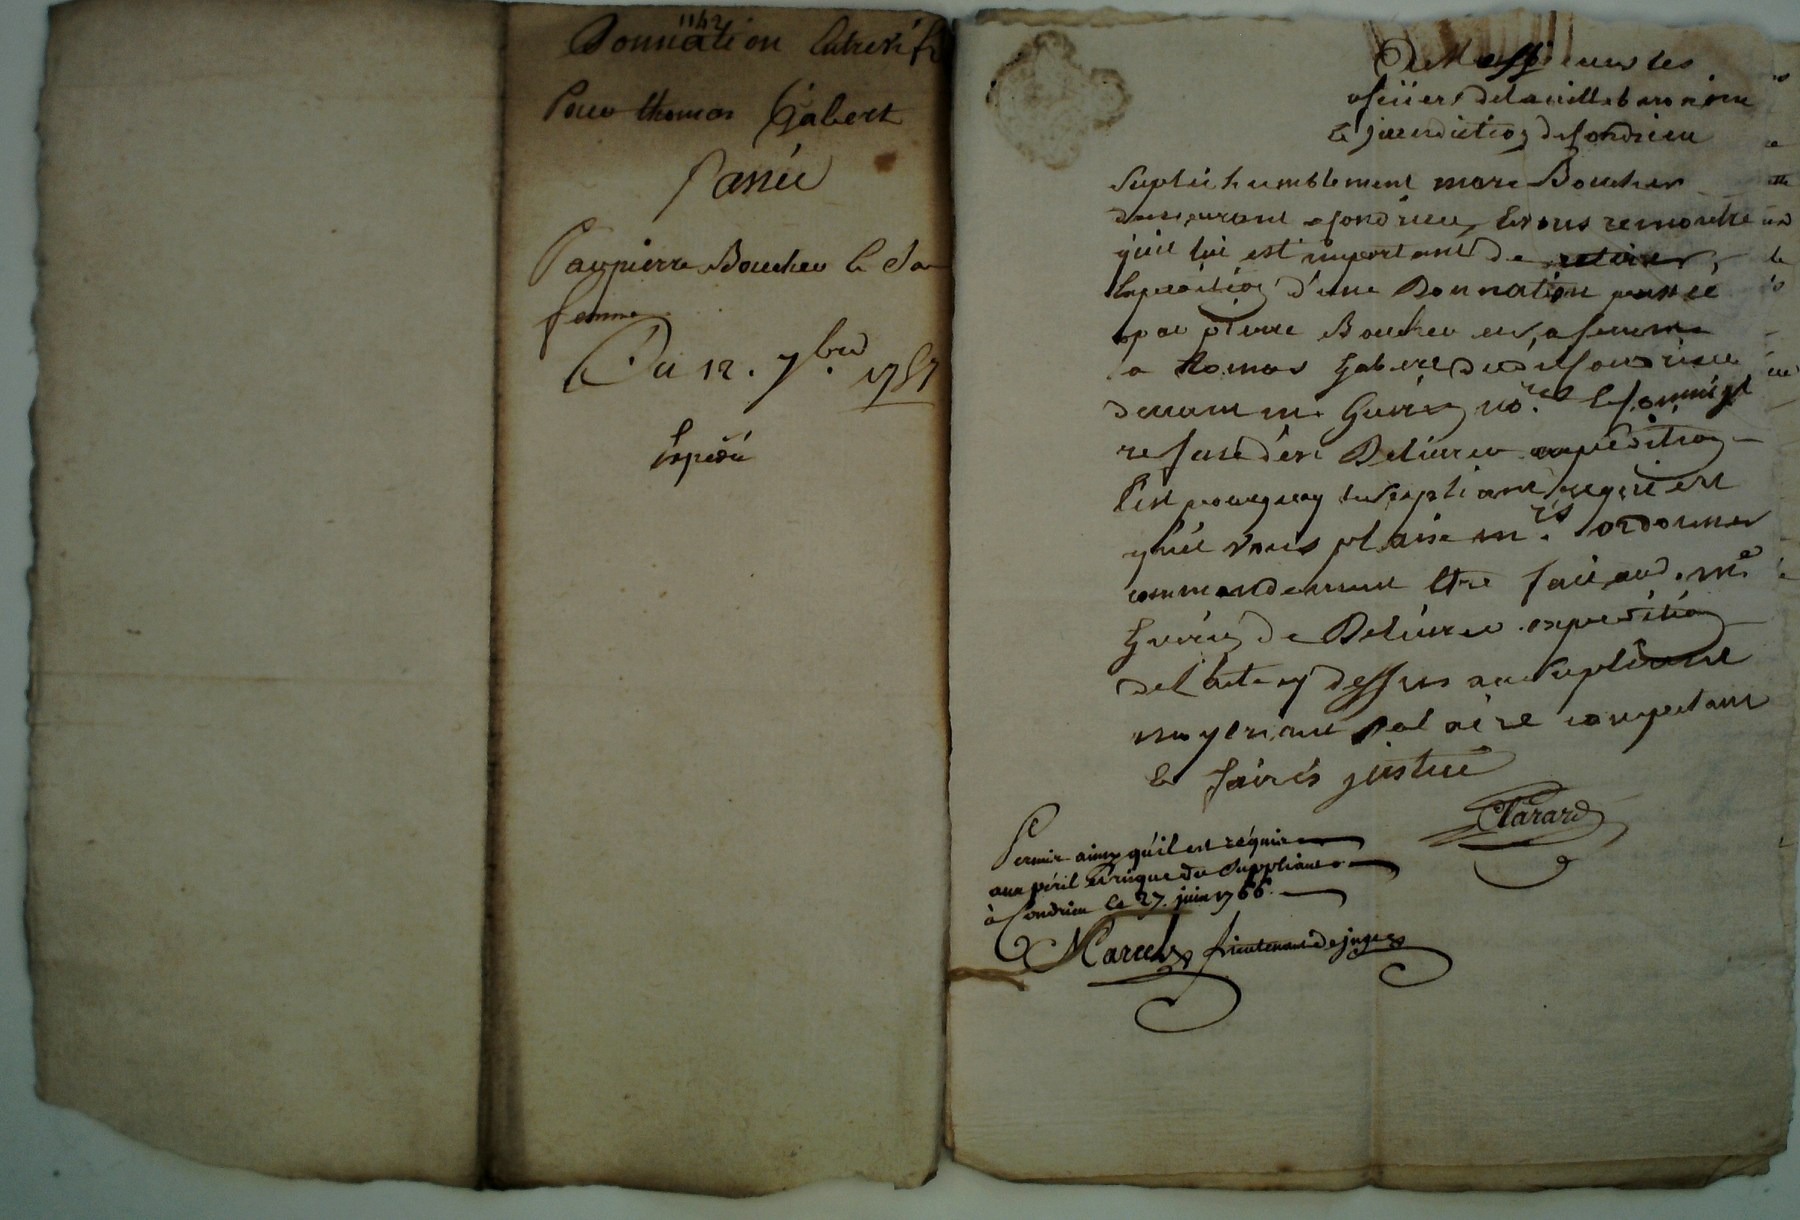 1142
Donnation Entrevifs
Pour thomas Gabert
Passée
Par pierre Boucher & Sa
femme
Du 12. 7.bre 1757
Expédié
A Messieurs les
oficiers de la ville baronnie
& jurisdiction de Condrieu
Suplie humblement marc Boucher
demeurant a Condrieu, & vous remontre
qu'il lui est important de retirer
Expedition d'une Donnation passée
par pierre Boucher et sa femme
a thomas Gabert dud. Condrieu
devant me Guerin no.re
refuse d'en Delivrer expedition
C'est pourquoy le supliant requiert
qu'il vous plaise m.rs ordonner
commandement Etre fait aud. me
Guerin de Delivrer expedition
de l'acte cy dessus au supliant
moyenant salaire competant
& fairés justice
Clarard
Permis ainsy qu'il est réquis
aux péril & risque du Suppliant
à Condrieu le 27. juin 1766.
Marcel lieutenant de juge